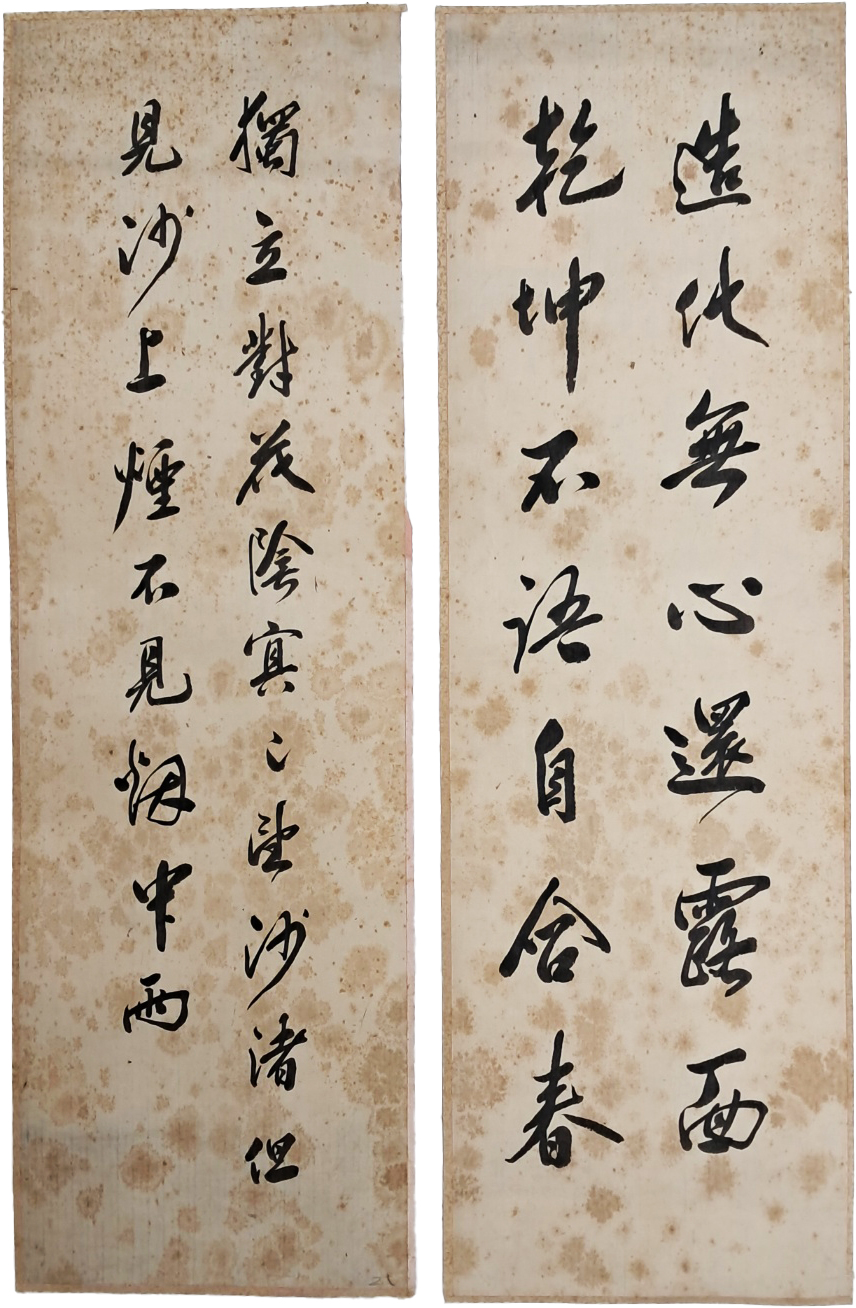 造化無心還露面
乾坤不語自含春
獨立對花陰冥〻望沙渚但
見沙上煙不見烟中雨